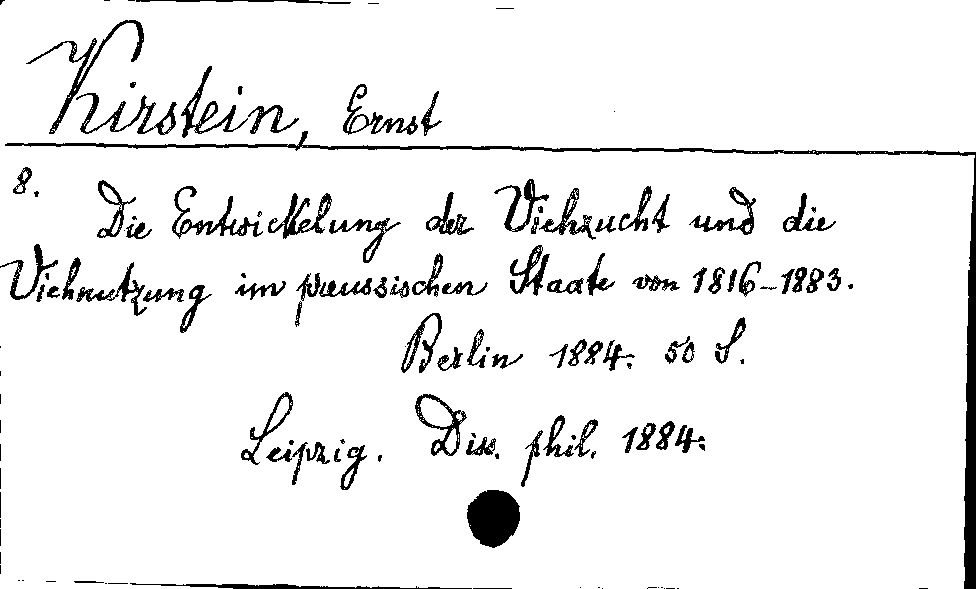 Kirstein, Ernst
8.
Die Entwickelung der Viehzucht und die
Viehnutzung im preussischen Staate von 1816-1883.
Berlin 1884. 50 S.
Leipzig. Diss. phil. 1884.